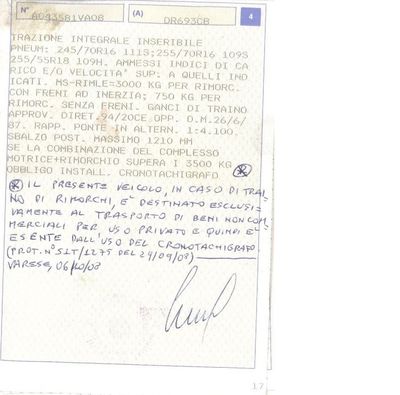 N° A043581VA08 (A) DR693CB 4
TRAZIONE INTEGRALE INSERIBILE
PNEUM: 245/70R16 111S;255/70R16 109S
255/55R18 109H. AMMESSI INDICI DI CA
RICO E/O VELOCITA' SUP. A QUELLI IND
ICATI. MS-RIMLE=3000 KG PER RIMORC.
CON FRENI AD INERZIA; 750 KG PER
RIMORC. SENZA FRENI. GANCI DI TRAINO
APPROV. DIRET.94/20CE OPP. D.M.26/6/
87. RAPP. PONTE IN ALTERN. 1:4.100.
SBALZO POST. MASSIMO 1210 MM
SE LA COMBINAZIONE DEL COMPLESSO
MOTRICE+RIMORCHIO SUPERA I 3500 KG
OBBLIGO INSTALL. CRONOTACHIGRAFO
IL PRESENTE VEICOLO, IN CASO DI TRAI_
NO DI RIMORCHI, E' DESTINATO ESCLUSI=
VAMENTE AL TRASPORTO DI BENI NON COM_
MERCIALI PER USO PRIVATO E QUINDI E'
ESENTE DALL'USO DEL CRONOTACHIGRAFO.
(PROT. N° SIT/1275 DEL 24/09/08)
VARESE, 06/10/08
17